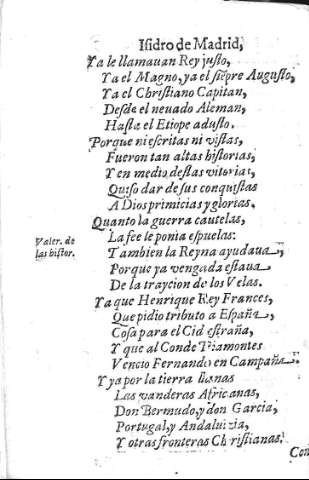 Isidro de Madrid,
Ya le llamauan Rey justo,
Ya el Magno, ya el siẽpre Augusto,
Ya el Christiano Capitan,
Desde el neuado Aleman,
Hasta el Etiope adusto.
Porque ni escritas ni vistas,
Fueron tan altas historias,
Y en medio destas vitorias,
Quiso dar de sus conquistas
A Dios primicias y glorias.
Quanto la guerra cautelas,
La fee le ponia espuelas:
Valer. de
las histor.
Tambien la Reyna ayudaua,
Porque ya vengada estaua
De la traycion de los Velas.
Ya que Henrique Rey Frances,
Que pidio tributo a España,
Cosa para el Cid estraña,
Y que al Conde Piamontes
Vencio Fernando en Campaña.
Y ya por la tierra llanas
Las vanderas Africanas,
Don Bermudo, y don Garcia,
Portugal, y Andaluzia,
Y otras fronteras Christianas.
Con